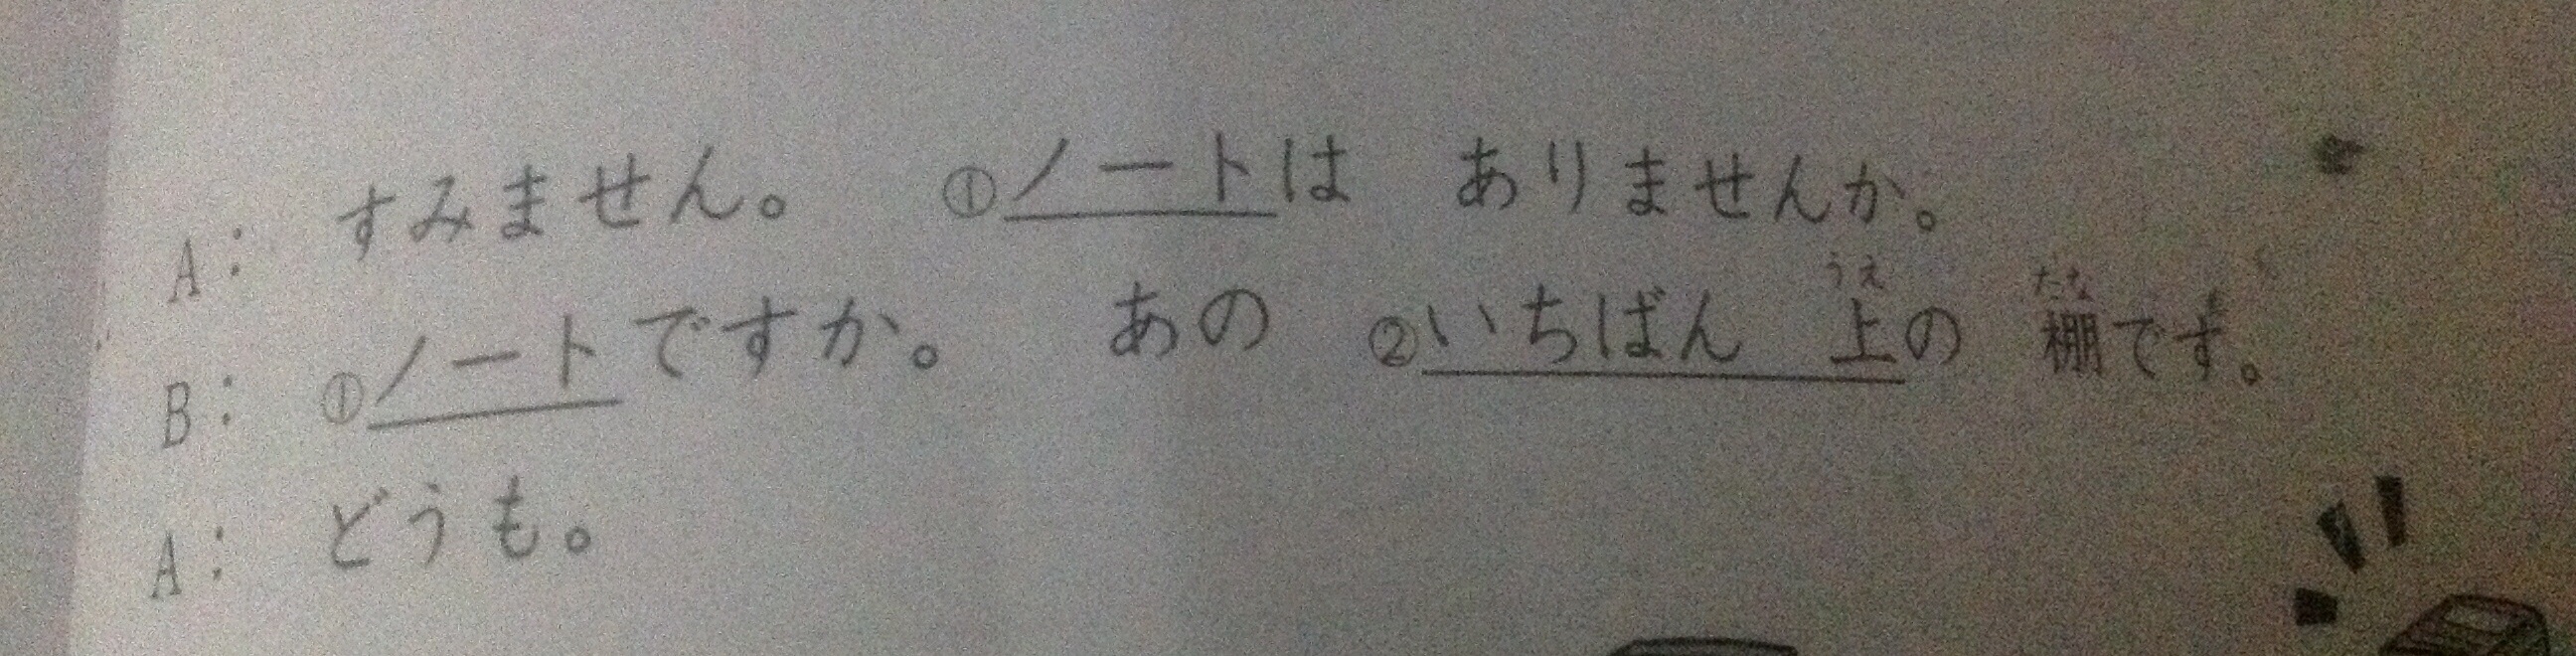 A： すみません。 ①ノートは ありませんか。
B： ①ノートですか。 あの ②いちばん 上の 棚です。
うえ たな
A： どうも。